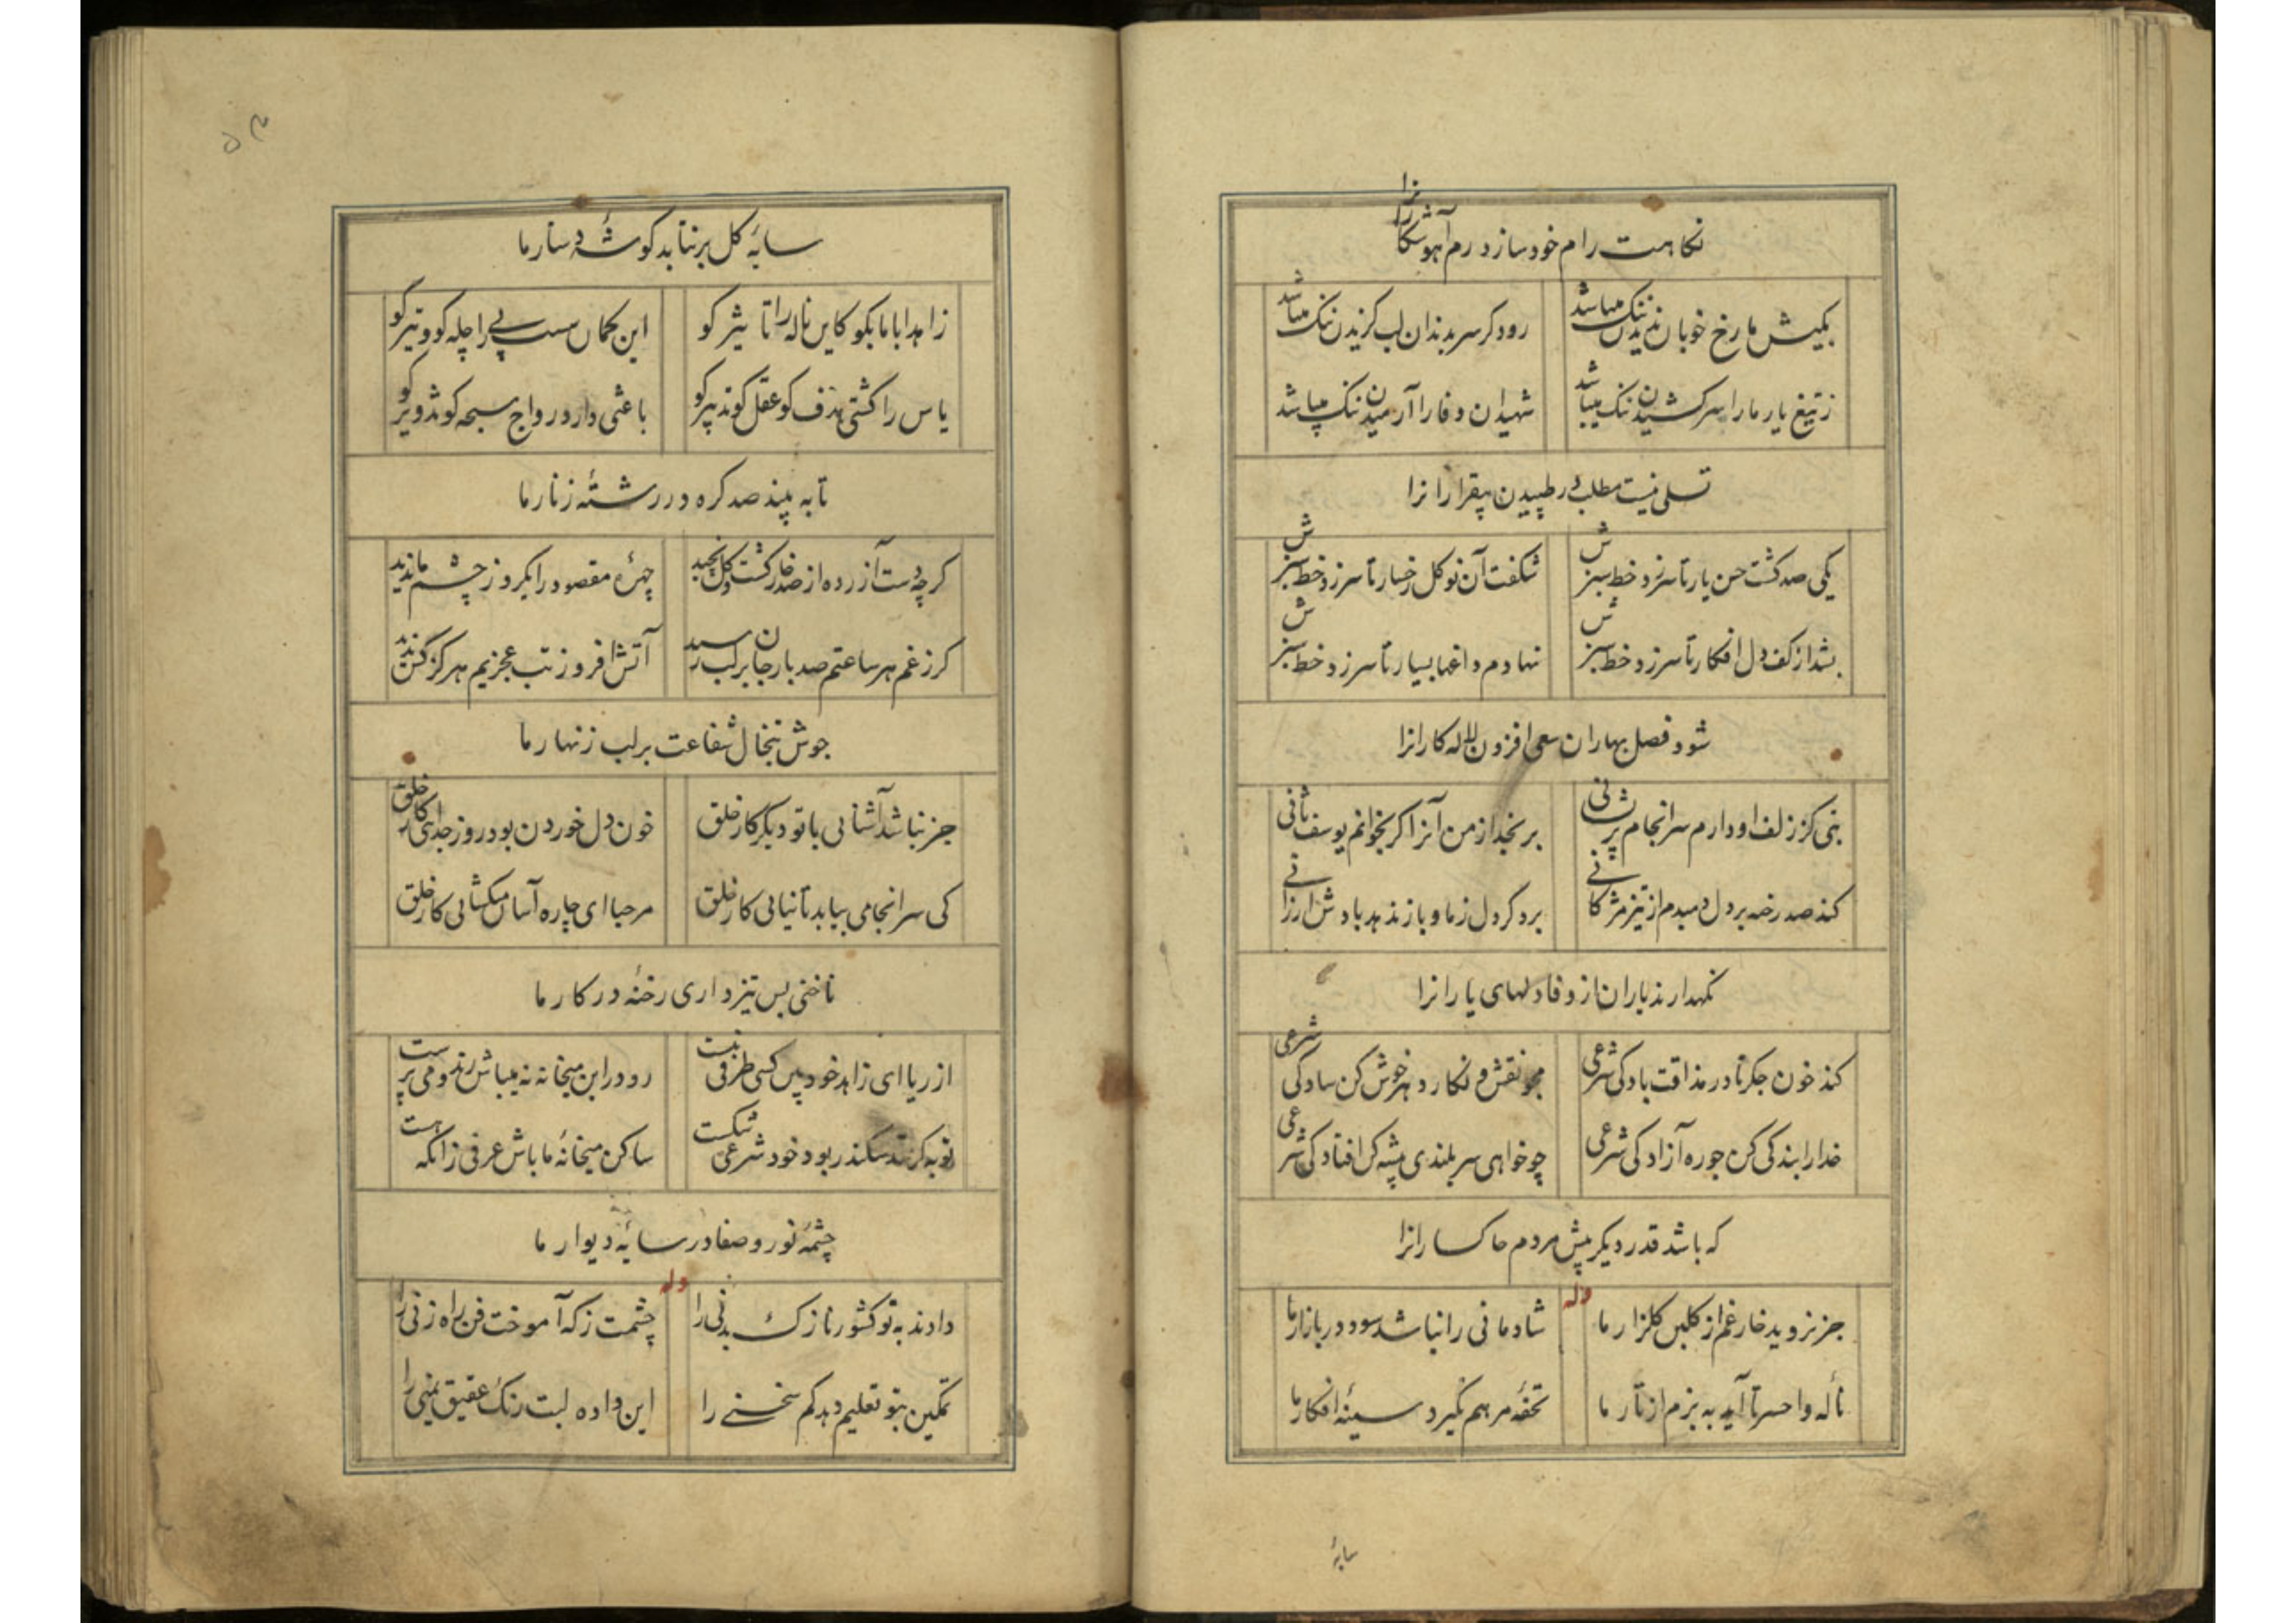 نکاهت رام خود سازد رم آهو شکارانرا
بکیش ما رخ خوبان ندیدن ننک میباشد
رود کر سر بدندان لب کزیدن ننک میباشد
ز تیغ یار ما را سر کشیدن ننک میباشد
شهیدان وفا را آرمیدن ننک میباشد
تسلی نیست مطلب در طپیدن بیقرارانرا
یکی صد کشت حسن یار تا سر زد خط سبزش
شکفت آن نو کل رخسار تا سر زد خط سبزش
بشد از کف دل افکار تا سر زد خط سبزش
نهادم داغها بسیار تا سر زد خط سبزش
شود فصل بهاران سعی افزون لاله کارانرا
بتی کز زلف او دارم سرانجام پریشانی
برنجد از من آنرا کر بخوانم یوسف ثانی
کند صد رخنه بر دل دمبدم از تیز مژکانی
برد کر دل ز ما و باز ندهد باد ش ارزانی
نکهدارند یاران از وفا دلهای یارانرا
کند خون جکر تا در مذاقت بادکی شرعی
مجو نقش و نکار دهر خوش کن سادکی شرعی
خدا را بندکی کن جو ره آزادکی شرعی
چو خواهی سر بلندی پیشه کن افتادکی شرعی
که باشد قدر دیکر پیش مردم خاکسارانرا
وله
جز نروید خار غم از کلبن کلزار ما
شادمانی را نباشد سود در بازار ما
ناله واحسرتا آید به بزم از تار ما
تحفه مرهم نکیرد سینهٔ افکار ما
سایهٔ
۵۳
سایهٔ کل برنتابد کوشهٔ دستار ما
زاهدا با ما بکو کاین ناله را تاثیر کو
این کمان سست پی را چله کو و تیر کو
یاس را کشتی هدف کو عقل کو تدبیر کو
باعثی دارد رواج سبحه کو تزویر کو
تا به بیند صد کره در رشتهٔ زنار ما
کرچه دست آزرده از صد خار کشت و کل نچید
چهرهٔ مقصود را یکروز چشم ما ندید
کر ز غم هر ساعتم صد بار جان بر لب رسید
آتش افروز تب عجزیم هرکز کس ندید
جوش تبخال شفاعت بر لب زنهار ما
جز نباشد آشنائی با تو دیکر کار خلق
خون دل خوردن بود روز جدائی کار خلق
کی سرانجامی بیابد تا نیائی کار خلق
مرحبا ای چاره آسان میکشائی کار خلق
ناخنی بس تیز داری رخنهٔ در کار ما
از ریا ای زاهد خودبین کسی طرفی نبست
رو در این میخانه نه میباش رند و می پرست
توبه کر سد سکندر بود خود شرعی شکست
ساکن میخانهٔ ما باش عرفی زانکه هست
چشمهٔ نور و صفا در سایهٔ دیوار ما
وله
دادند به تو کشور نازک بدنی را
چشمت ز که آموخت فن راه زنی را
تمکین بتو تعلیم دهد کم سخنی را
این داده لبت رنک عقیق یمنی را